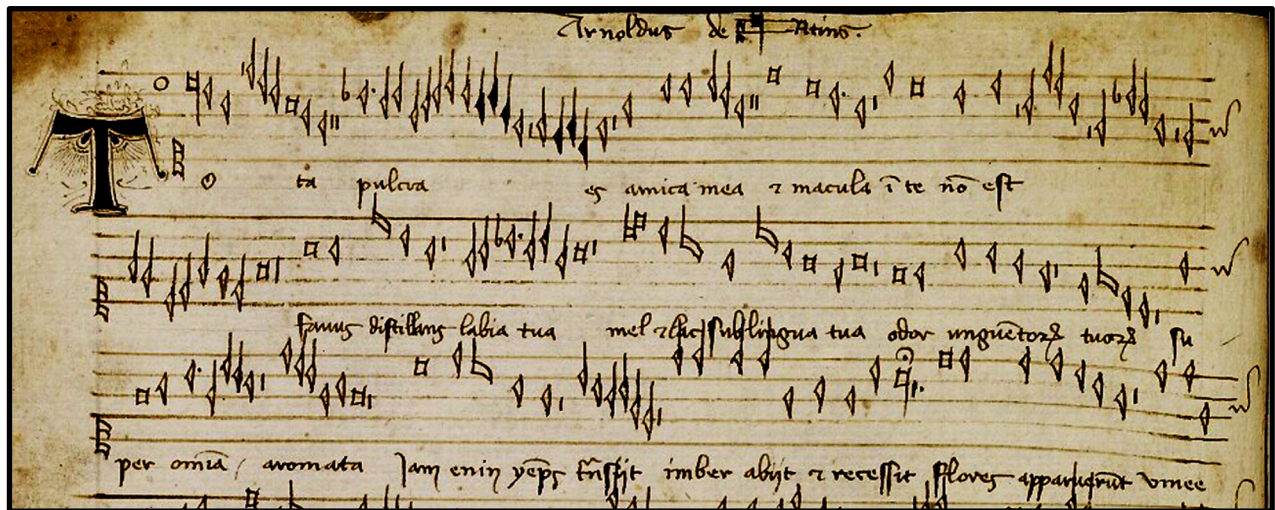 Arnoldus de
Tota pulcra es amica mea ⁊ macula ī te nō est
favus distillans labia tua mel ⁊ lac sub lingua tua odor unguētorꝝ tuorꝝ su
per omīa aromata Jam enim yēps trāsiit imber abiit ⁊ recessit fflores apparuerūt vinee